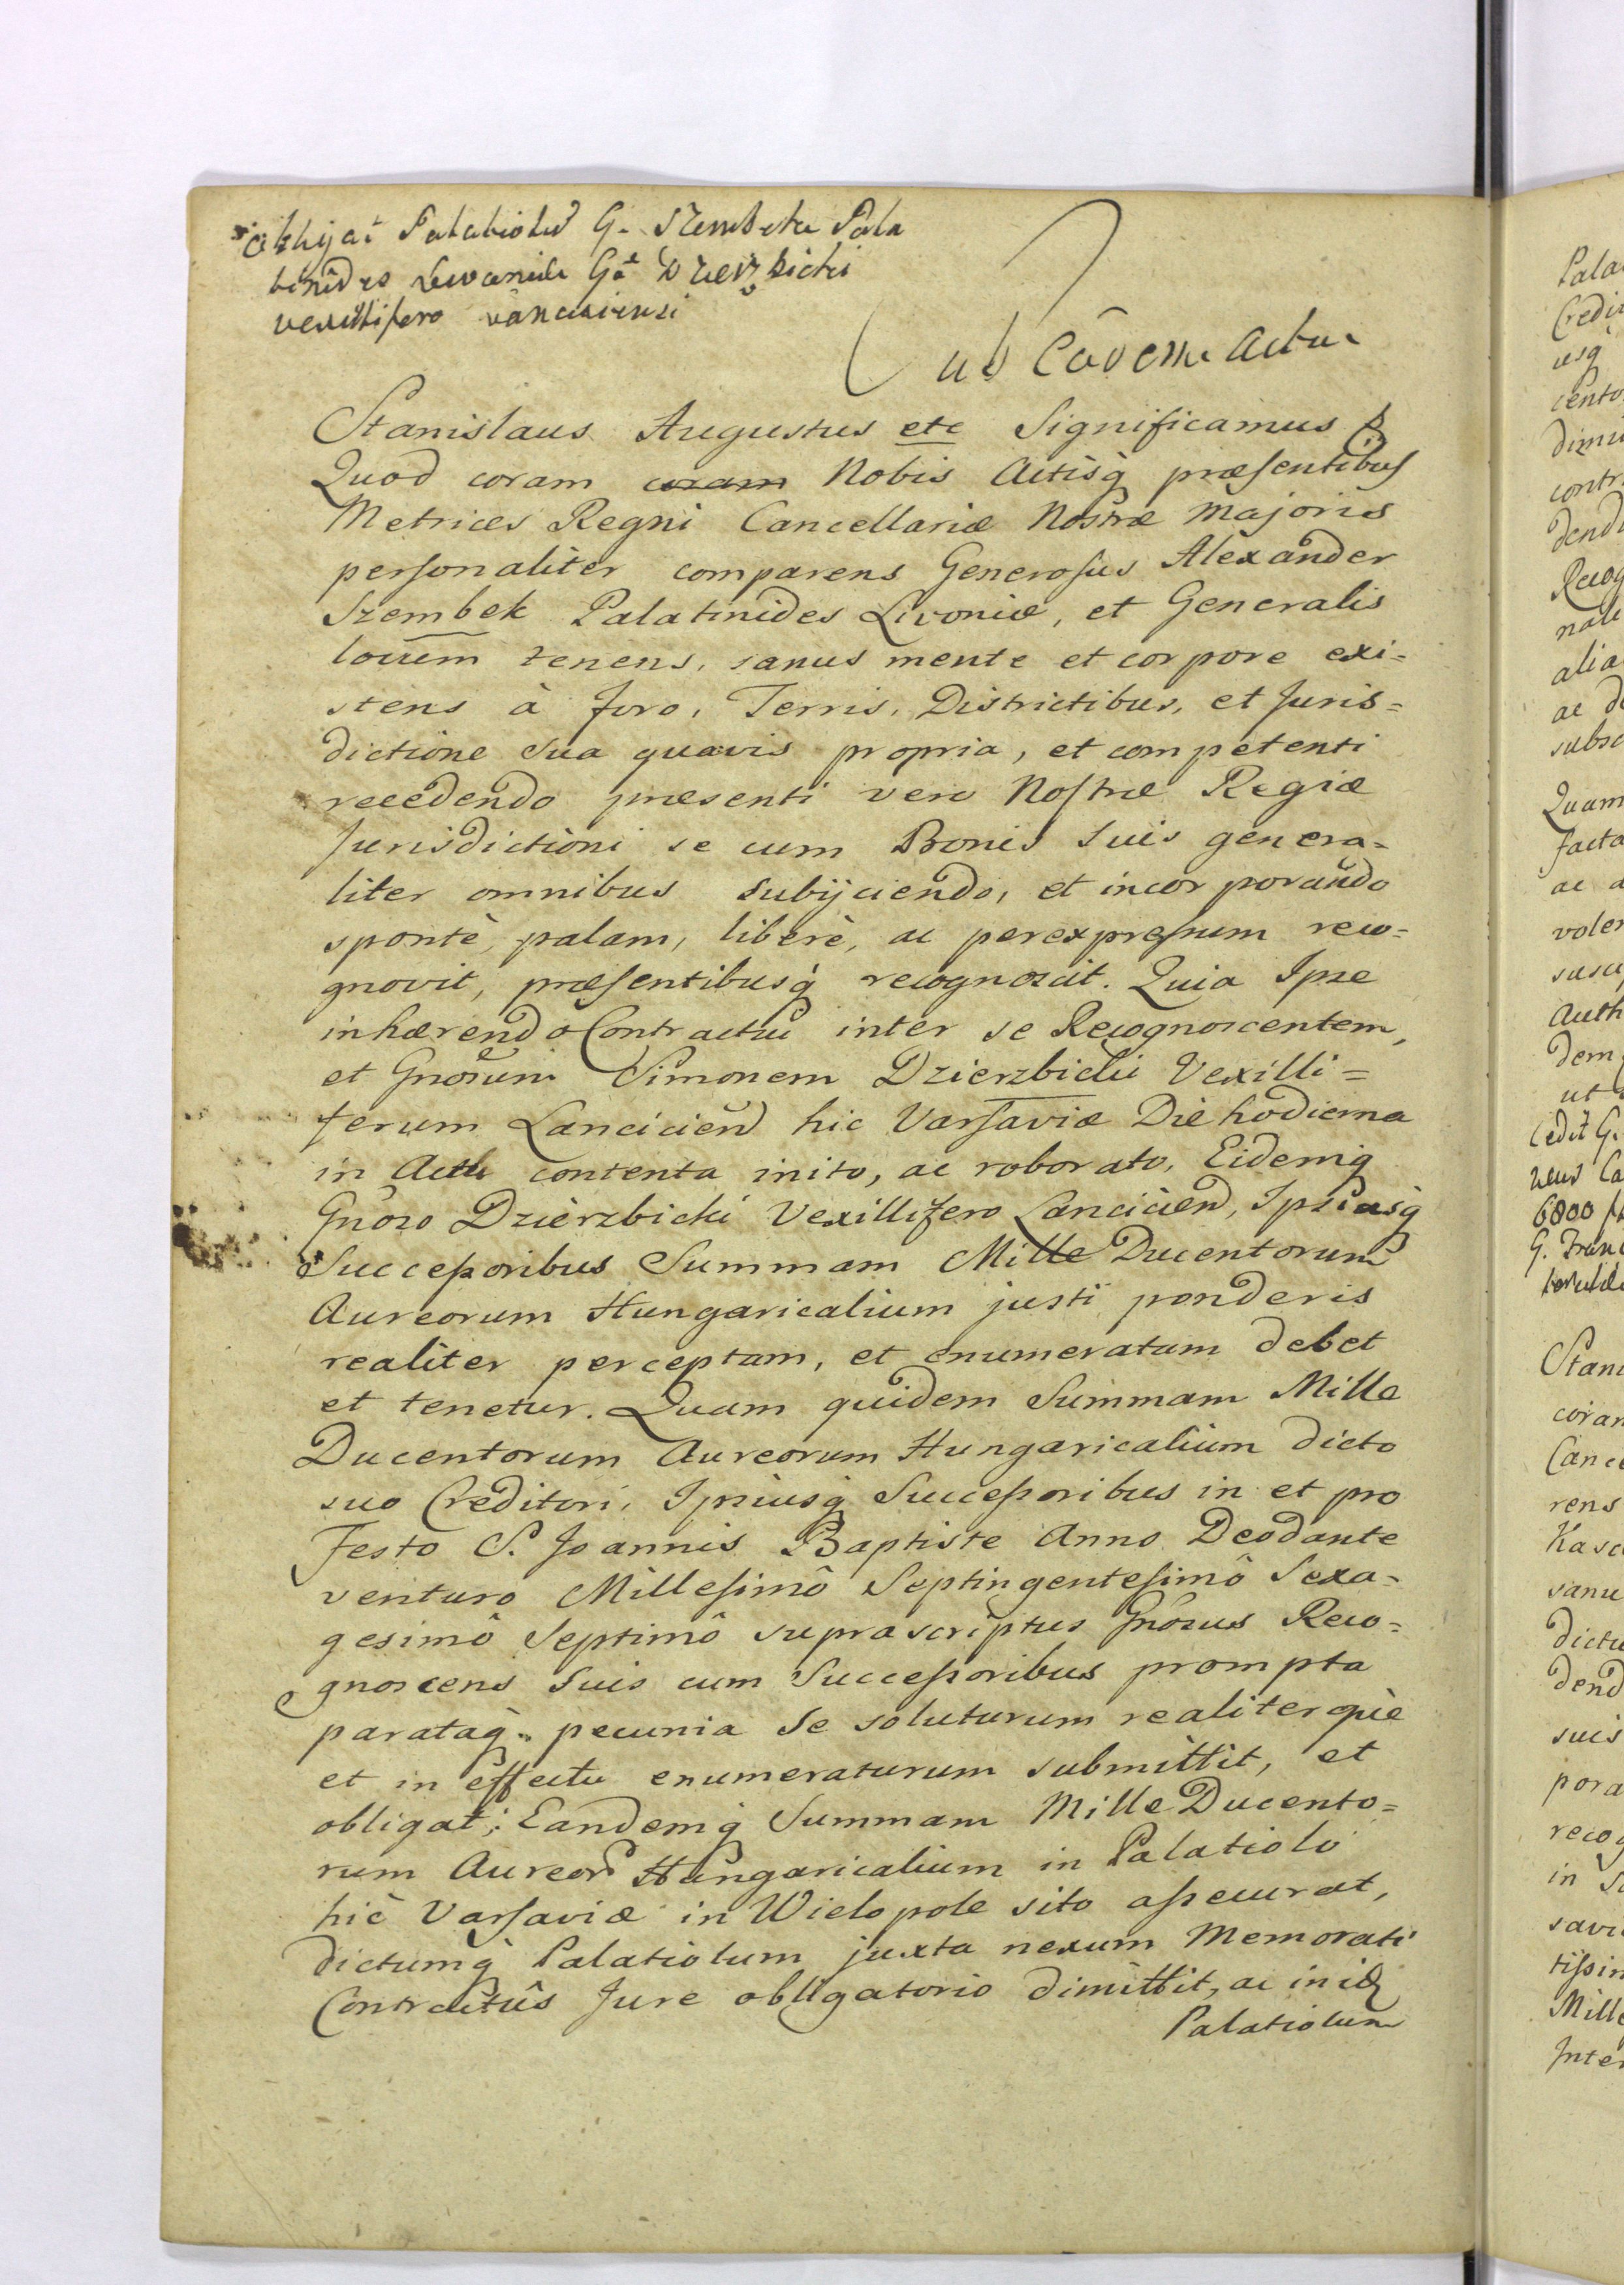 G. Szembeka Pala
Dzierzbicki
vexillifero
Sub eâdem Actu
Stanislaus Augustus etc Significamus
Quod coram coram Nobis Actisq́ præsentibus
Metrices Regni Cancellariæ Nostræ Majoris
personaliter comparens Generosus Alexander
Szembek Palatinides Livoniæ, et Generalis
locum tenens, sanus mente et corpore exi=
stens à foro, Terris, Districtibus, et Juris=
dictione Sua quavis propria, et competenti
recedendo præsenti vero Nostræ Regiæ
Jurisdictioni se cum Bonis Suis genera=
liter omnibus Subijciendo, et incorporando
spontè, palam, liberè, ac per expressum reco=
gnovit, præsentibusq́ recognoscit. Quia Ipse
inhærendo Contractui inter se Recognoscentem,
et Gnosum Simonem Dzierzbicki Vexilli=
ferum Lanciciens hic Varsaviæ Die hodierna
in Actu contenta inito, ac roborato, Eidemq́
Gnoso Dzierzbicki Vexillifero Lanciciens, Ipsiusq́
Successoribus Summam Mille Ducentorum
Aureorum Hungaricalium justi ponderis
realiter perceptam, et enumeratam debet
et tenetur. Quam quidem Summam Mille
Ducentorum Aureorum Hungaricalium dicto
suo Creditori, Ipsiusq́ Successoribus in et pro
Festo S. Joannis Baptiste Anno Deo dante
venturo Millesimô Septingentesimô Sexa=
gesimô Septimô suprascriptus Gnosus Reco=
gnoscens Suis cum Successoribus prompta
parataq́ pecunia Se soluturum realiterque
et in effectu enumeraturum submittit, et
obligat; Eandemq́ Summam Mille Ducento=
rum Aureor Hungaricalium in Palatiolo
hic Varsaviæ in Wielopole sito assecurat,
dictumq́ Palatiolum juxta nexum Memorati
Contractûs Jure obligatorio dimittit, ac in id
Palatiolum